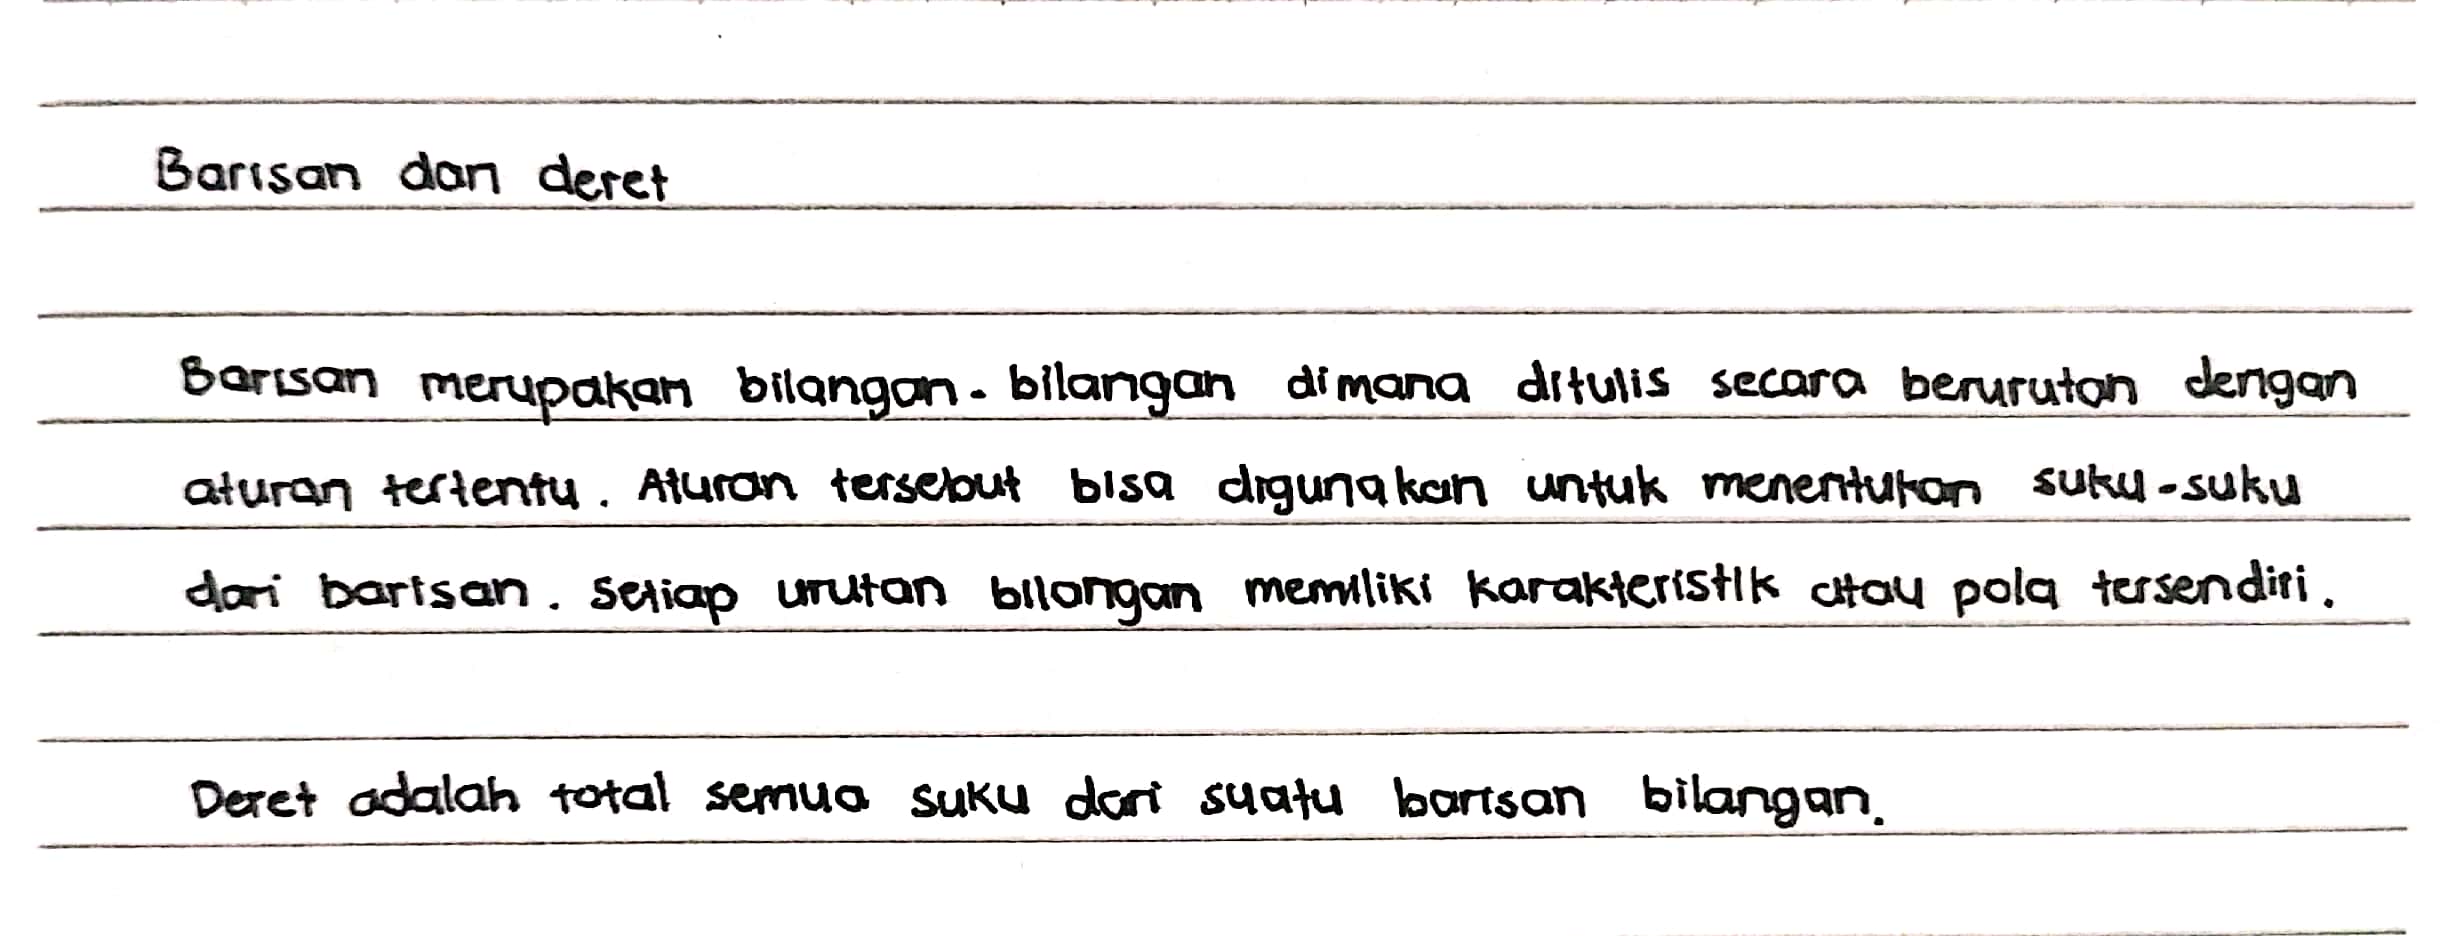 Barisan dan deret
Barisan merupakan bilangan-bilangan dimana ditulis secara berurutan dengan
aturan tertentu. Aturan tersebut bisa digunakan untuk menentukan suku-suku
dari barisan. Setiap urutan bilangan memiliki karakteristik atau pola tersendiri.
Deret adalah total semua suku dari suatu barisan bilangan.